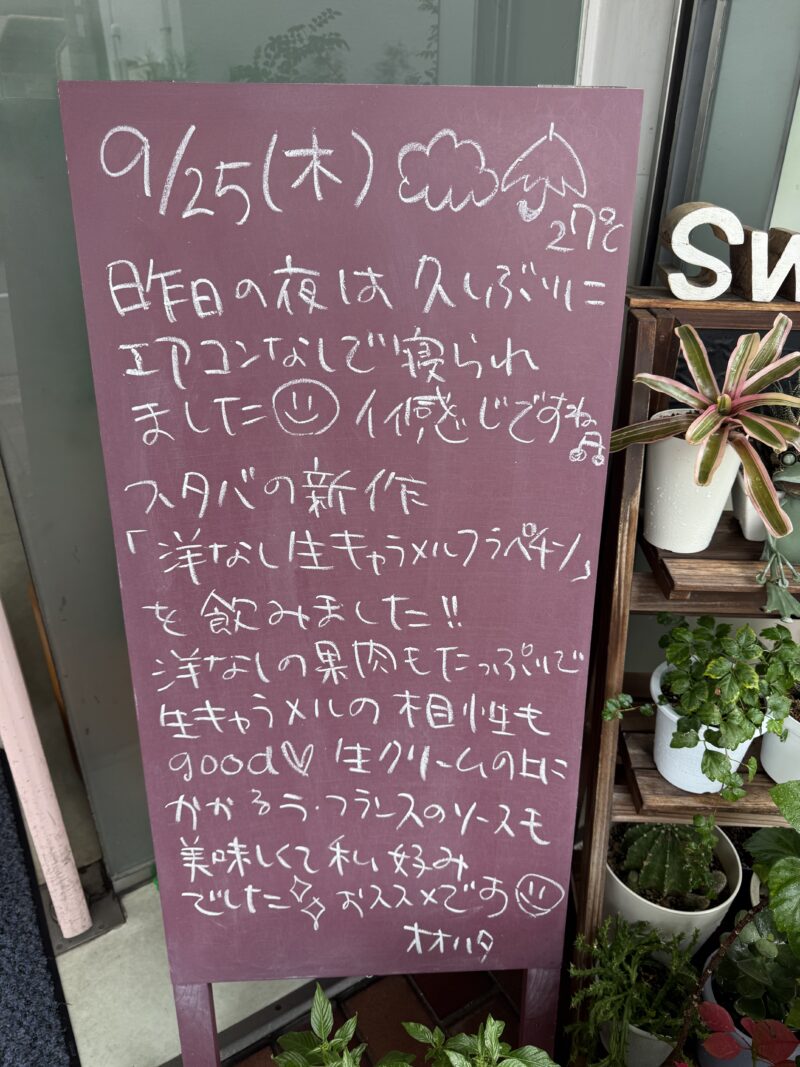 9/25(木)
27℃
昨日の夜は 久しぶりに
エアコンなしで寝られ
ました イイ感じですね
スタバの新作
「洋なし生キャラメルフラペチーノ」
を飲みました!!
洋なしの果肉もたっぷりで
生キャラメルの相性も
good♡ 生クリームの上に
かかるラ・フランスのソースも
美味しくて私好み
でした おススメです
オオハタ
SW